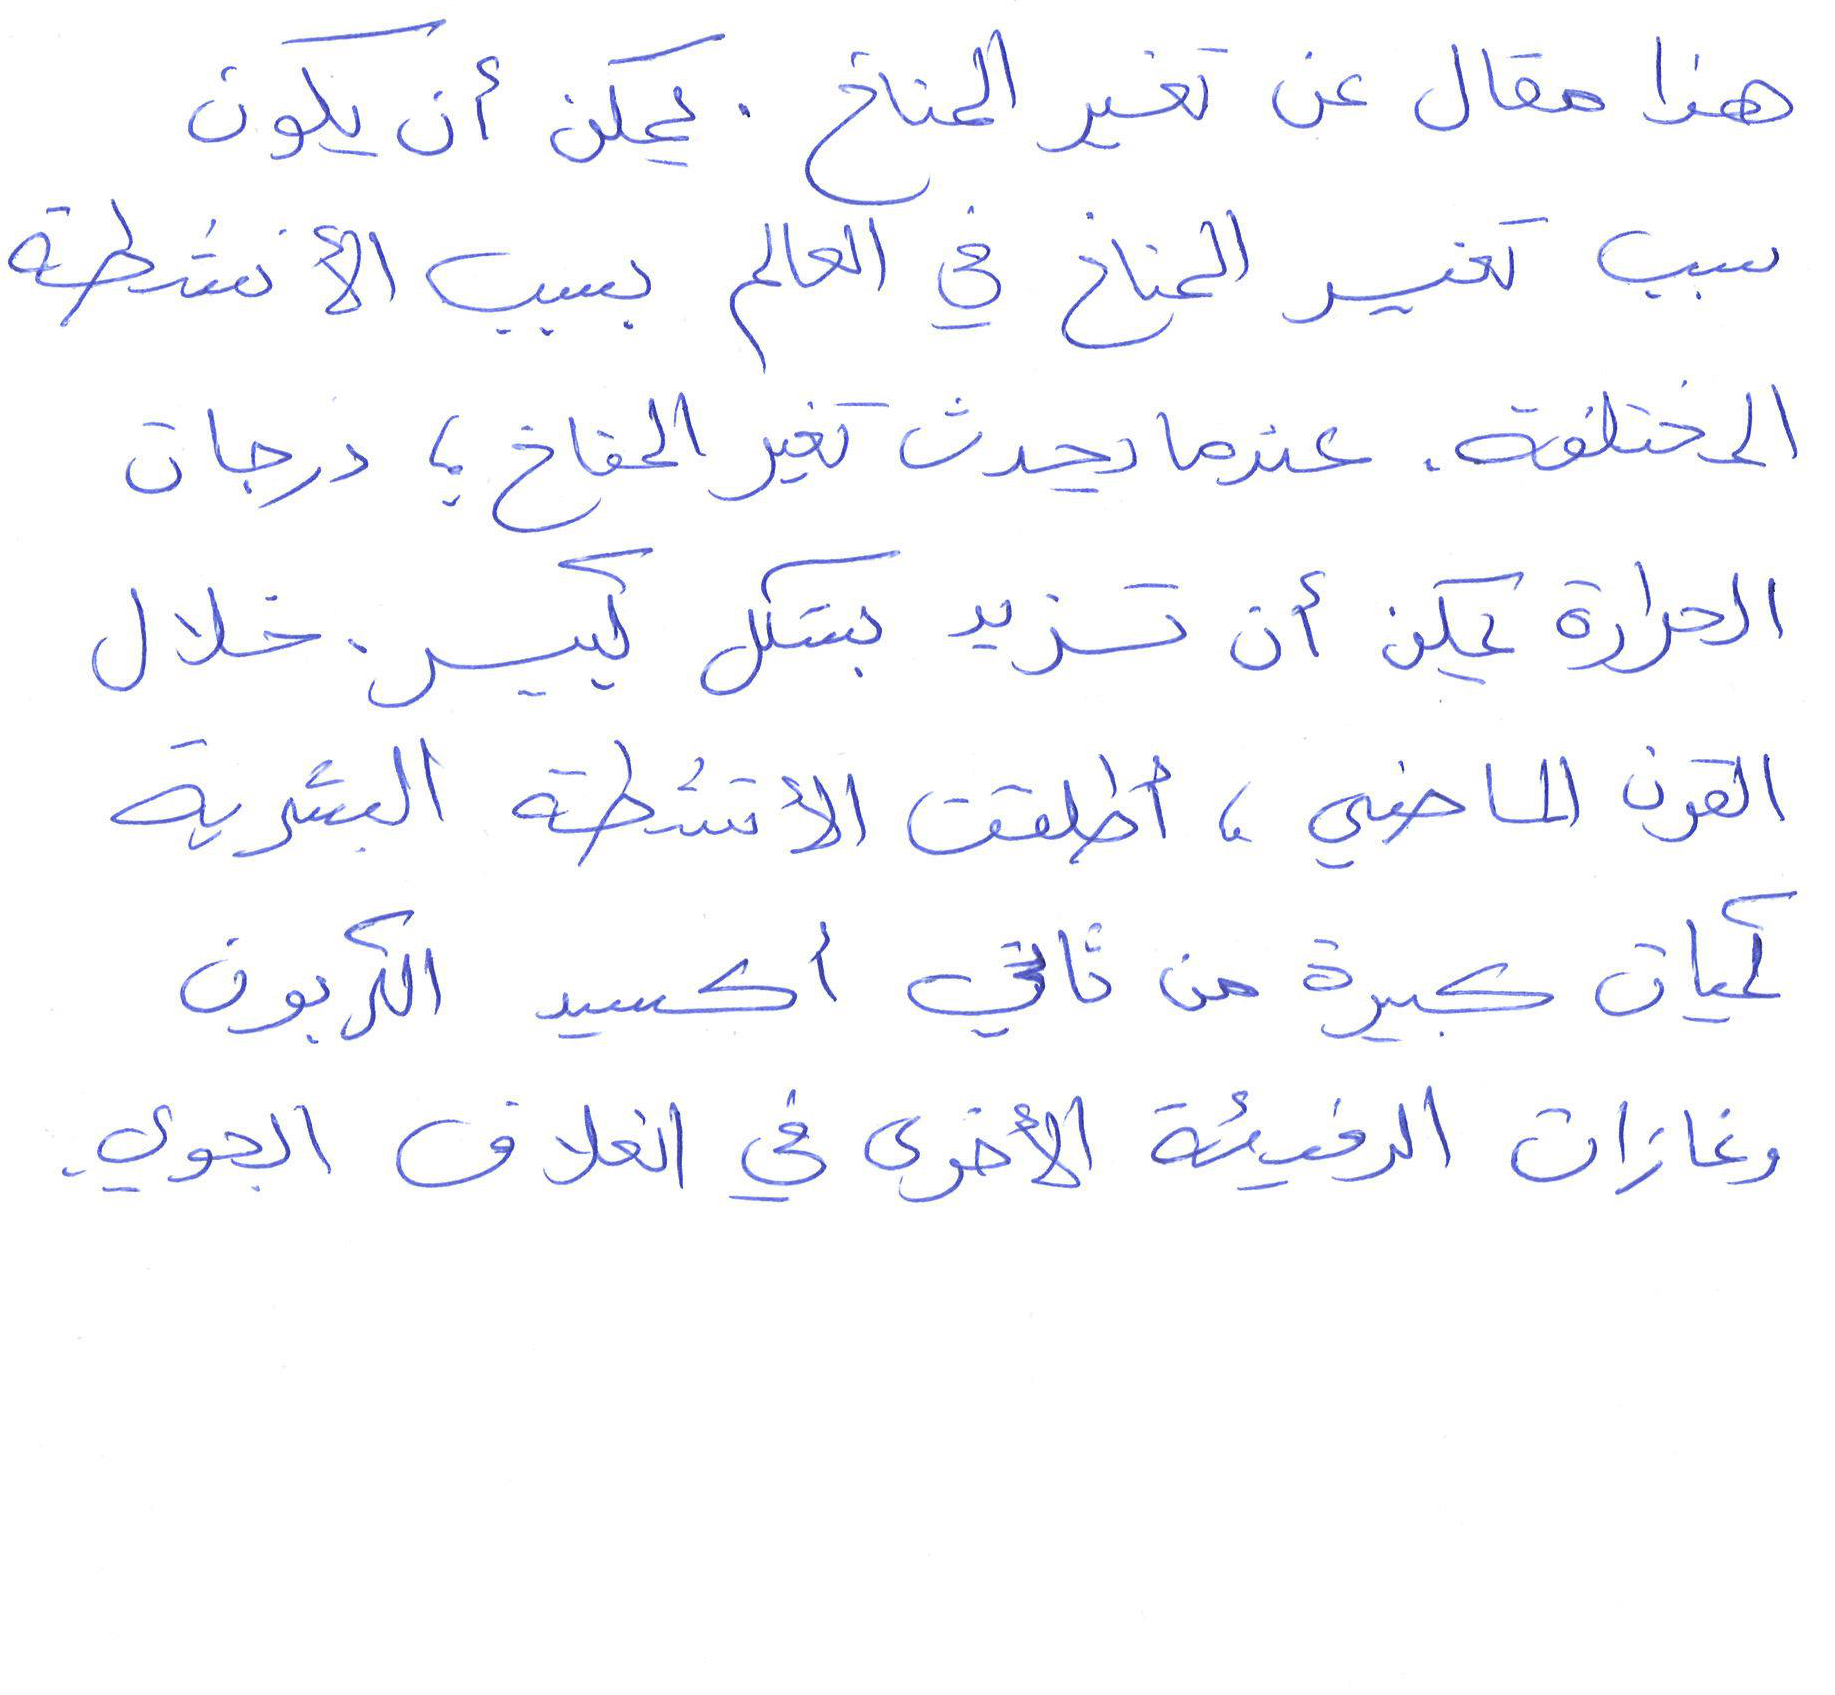 هذا مقال عن تغير المناخ . يمكن أن يكون
سبب تغير المناخ في العالم بسبب الأنشطة
المختلفة . عندما يحدث تغير المناخ ، درجات
الحرارة يمكن أن تزيد بشكل كبير . خلال
القرن الماضي ، أطلقت الأنشطة البشرية
كميات كبيرة من ثاني أكسيد الكربون
وغازات الدفيئة الأخرى في الغلاف الجوي .